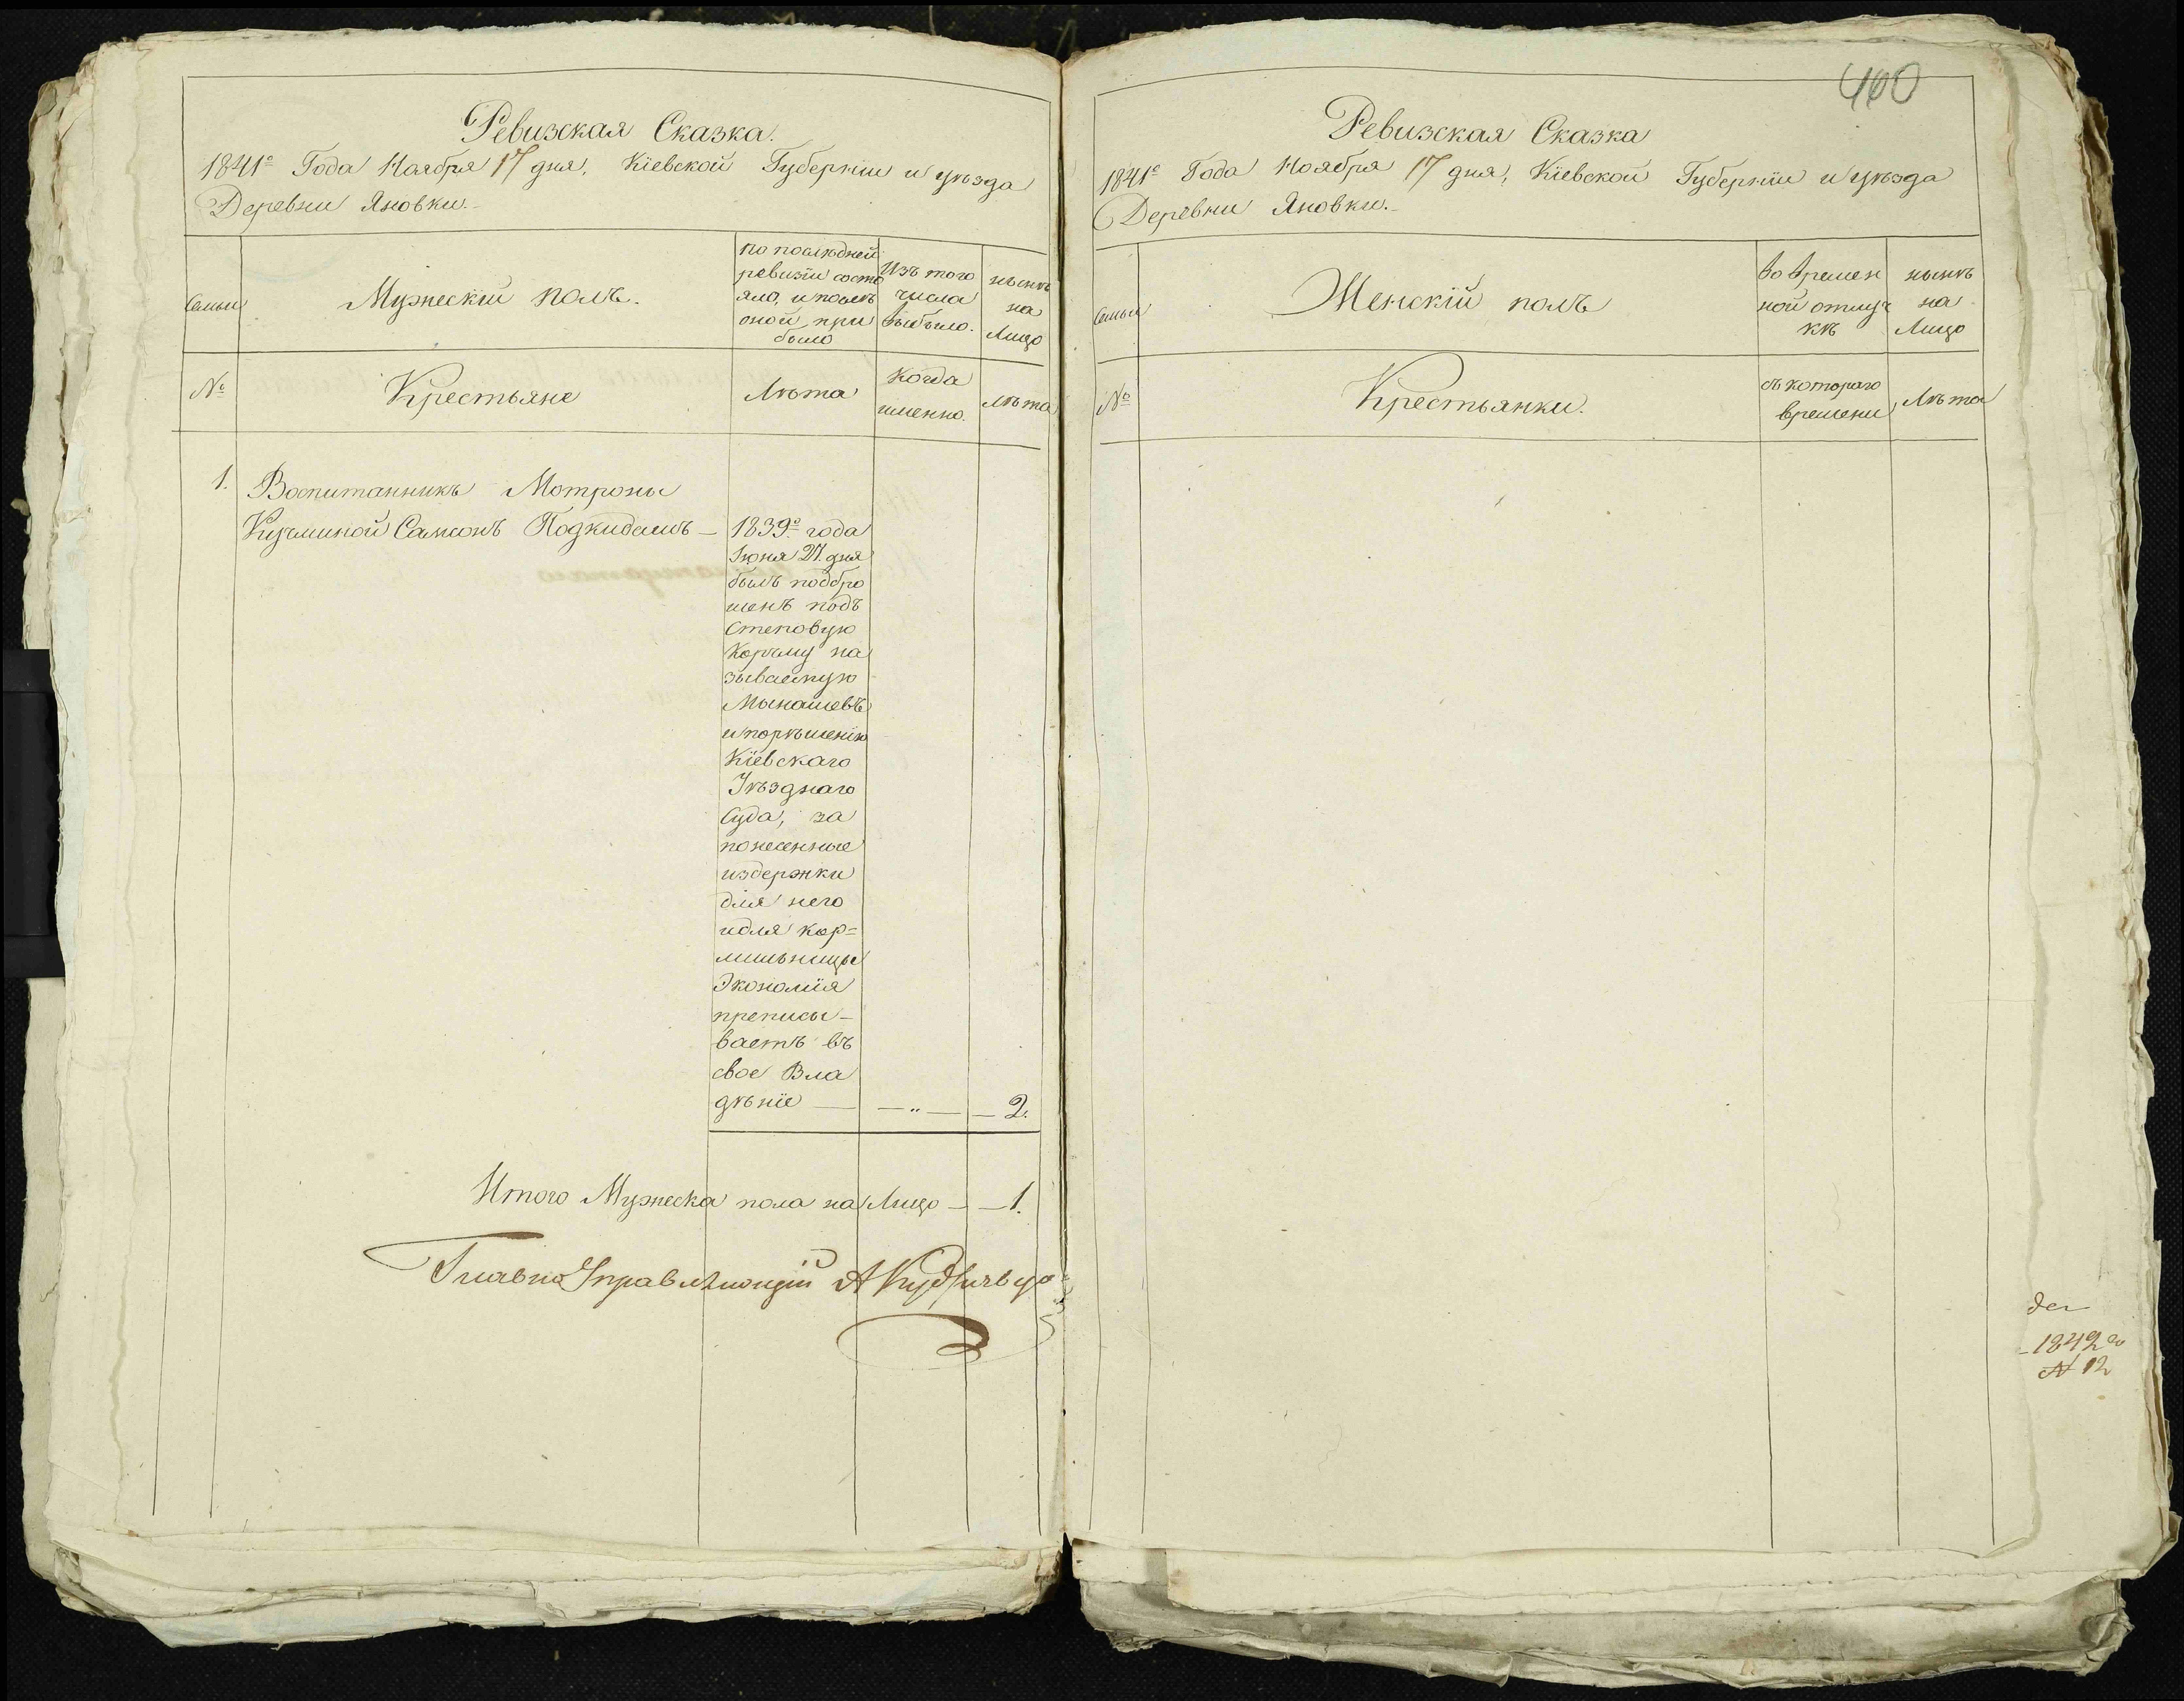 Ревизская Сказка.
1841го Года Ноября 17 дня, Кіевской Губерніи и уѣзда
Деревни Яновки.
Семьи
Мужескій полъ.
по послѣдней
ревизіи состо
яло, и послѣ
оной при
было
Изъ того
числа
выбыло.
нынѣ
на
Лицо
№
Крестьяне
Лѣта
Когда
именно.
Лѣта
1. Воспитанникъ Мотроны
Кузминой Самсонъ Подкидышъ — 1839го года
Іюня 27. дня
былъ подбро
шенъ подъ
Степовую
Корчму на
зываемую
и порѣшенію
Кіевскаго
Уѣзднаго
Суда, за
понесенные
издержки
для него
и для кор=
милницы
Экономія
преписы-
ваетъ въ
свое Вла
дѣніе — — „ — — 2.
Итого Мужеска пола на Лицо — — 1.
Главно Управляющій А
400
Ревизская Сказка
1841го Года Ноября 17 дня, Кіевской Губерніи и уѣзда
Деревни Яновки.
Семьи
Женскій полъ
Во времен
ной отлуч
кѣ
нынѣ
на
Лицо
№
Крестьянки.
съ котораго
времени
Лѣта
1842
№ 12